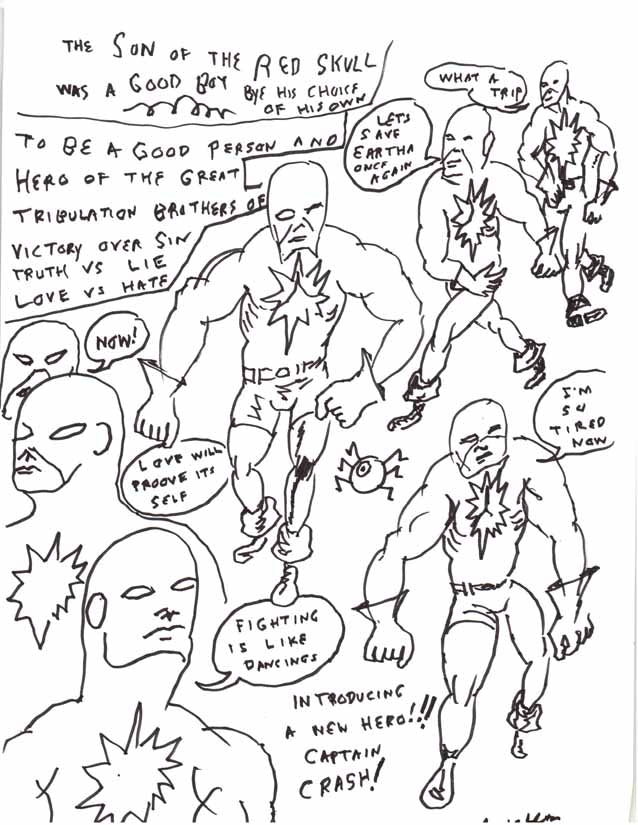 THE SON OF THE RED SKULL
WAS A GOOD BOY BYE HIS CHOICE
OF HIS OWN
TO BE A GOOD PERSON AND
HERO OF THE GREAT
TRIBULATION BROTHERS OF
VICTORY OVER SIN
TRUTH VS LIE
LOVE VS HATE
WHAT A
TRIP
LETS
SAVE
EARTHA
ONCE
AGAIN
NOW!
LOVE WILL
PROOVE ITS
SELF
I'M
SO
TIRED
NOW
FIGHTING
IS LIKE
DANCINGS
INTRODUCING
A NEW HERO!!!
CAPTAIN
CRASH!